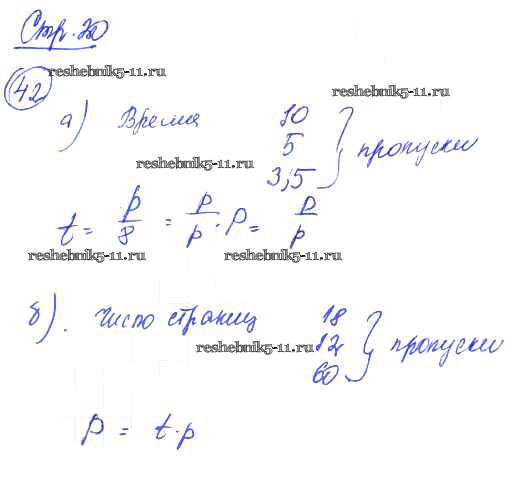 Стр. 20
reshebnik5-11.ru
42
reshebnik5-11.ru
а) Время 10
5 пропуски
reshebnik5-11.ru
3,5
t = p/8 = p/p · p = p/p
reshebnik5-11.ru reshebnik5-11.ru
б). Число страниц 18
reshebnik5-11.ru 12 пропуски
60
p = t · p